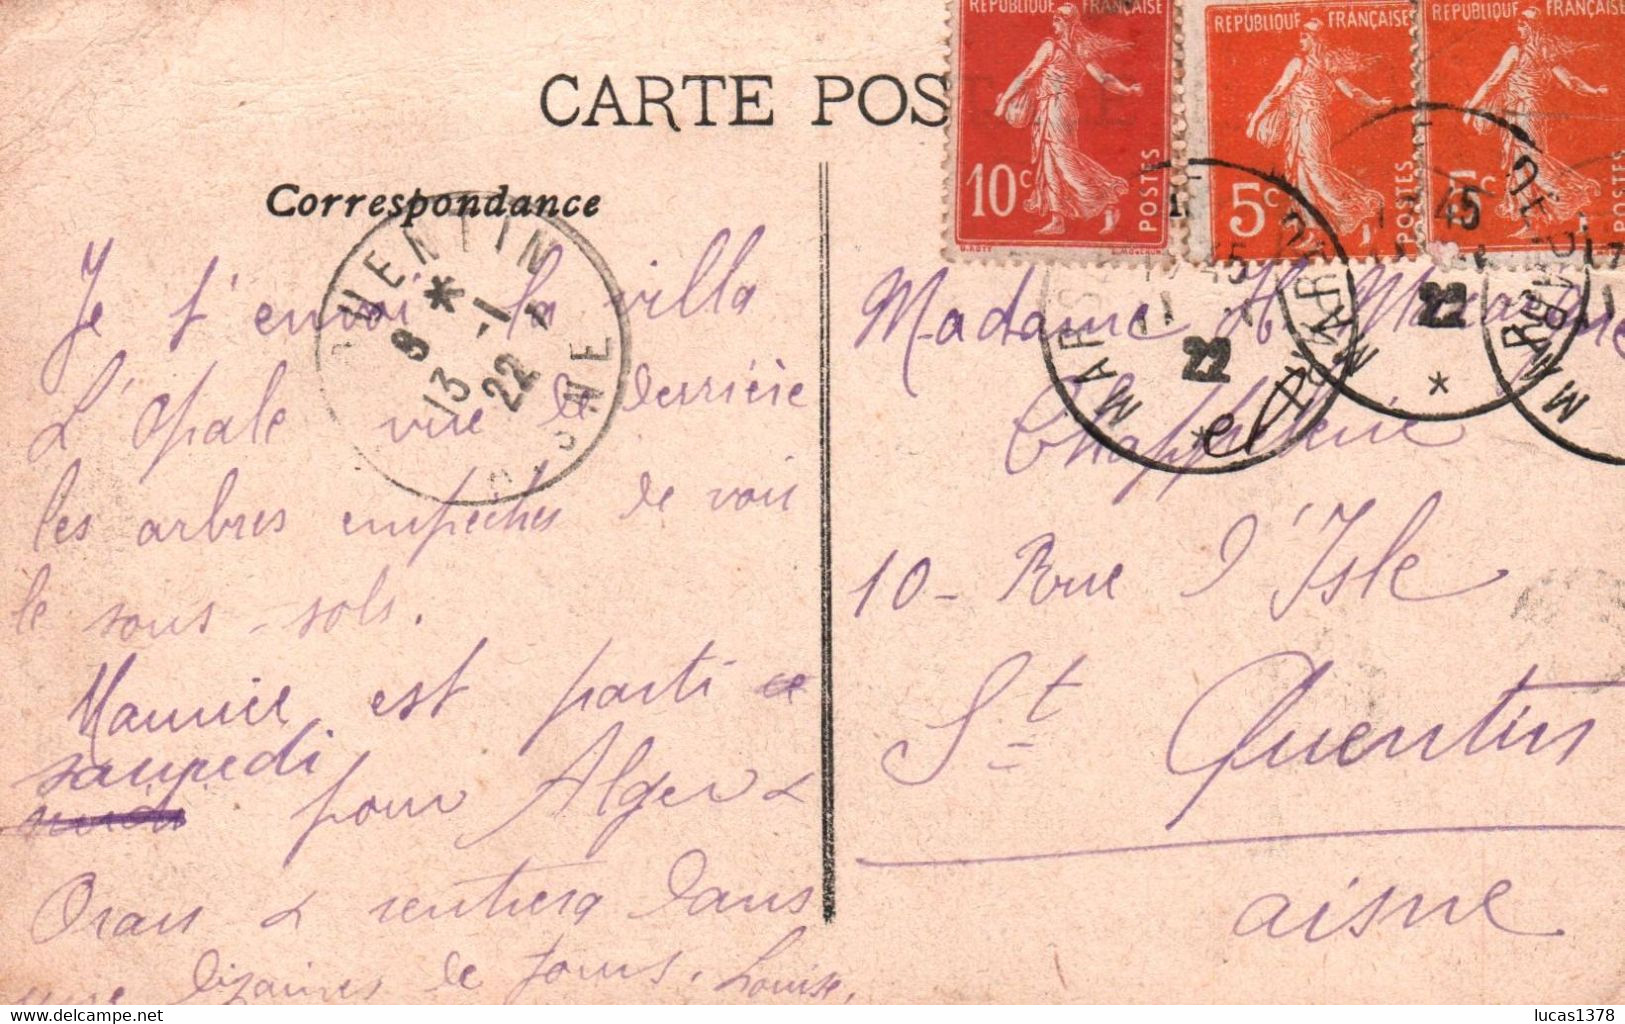 CARTE POSTALE
Correspondance
Je t'envoi la villa
L'Opale vue de derrière
les arbres empeches de voir
le sous-sols.
Maurice est parti
samedi pour Alger &
Oran & rentrera dans
une dizaines de jours. Louise.
RÉPUBLIQUE FRANÇAISE
10c POSTES
RÉPUBLIQUE FRANÇAISE
5c POSTES
RÉPUBLIQUE FRANÇAISE
5c POSTES
QUENTIN
8 * -1
13 22
AISNE
MARS
17 45
22
45
22
Madame
Chapellerie
10 - Rue d'Isle
St Quentin
aisne
www.delcampe.net
lucas1378